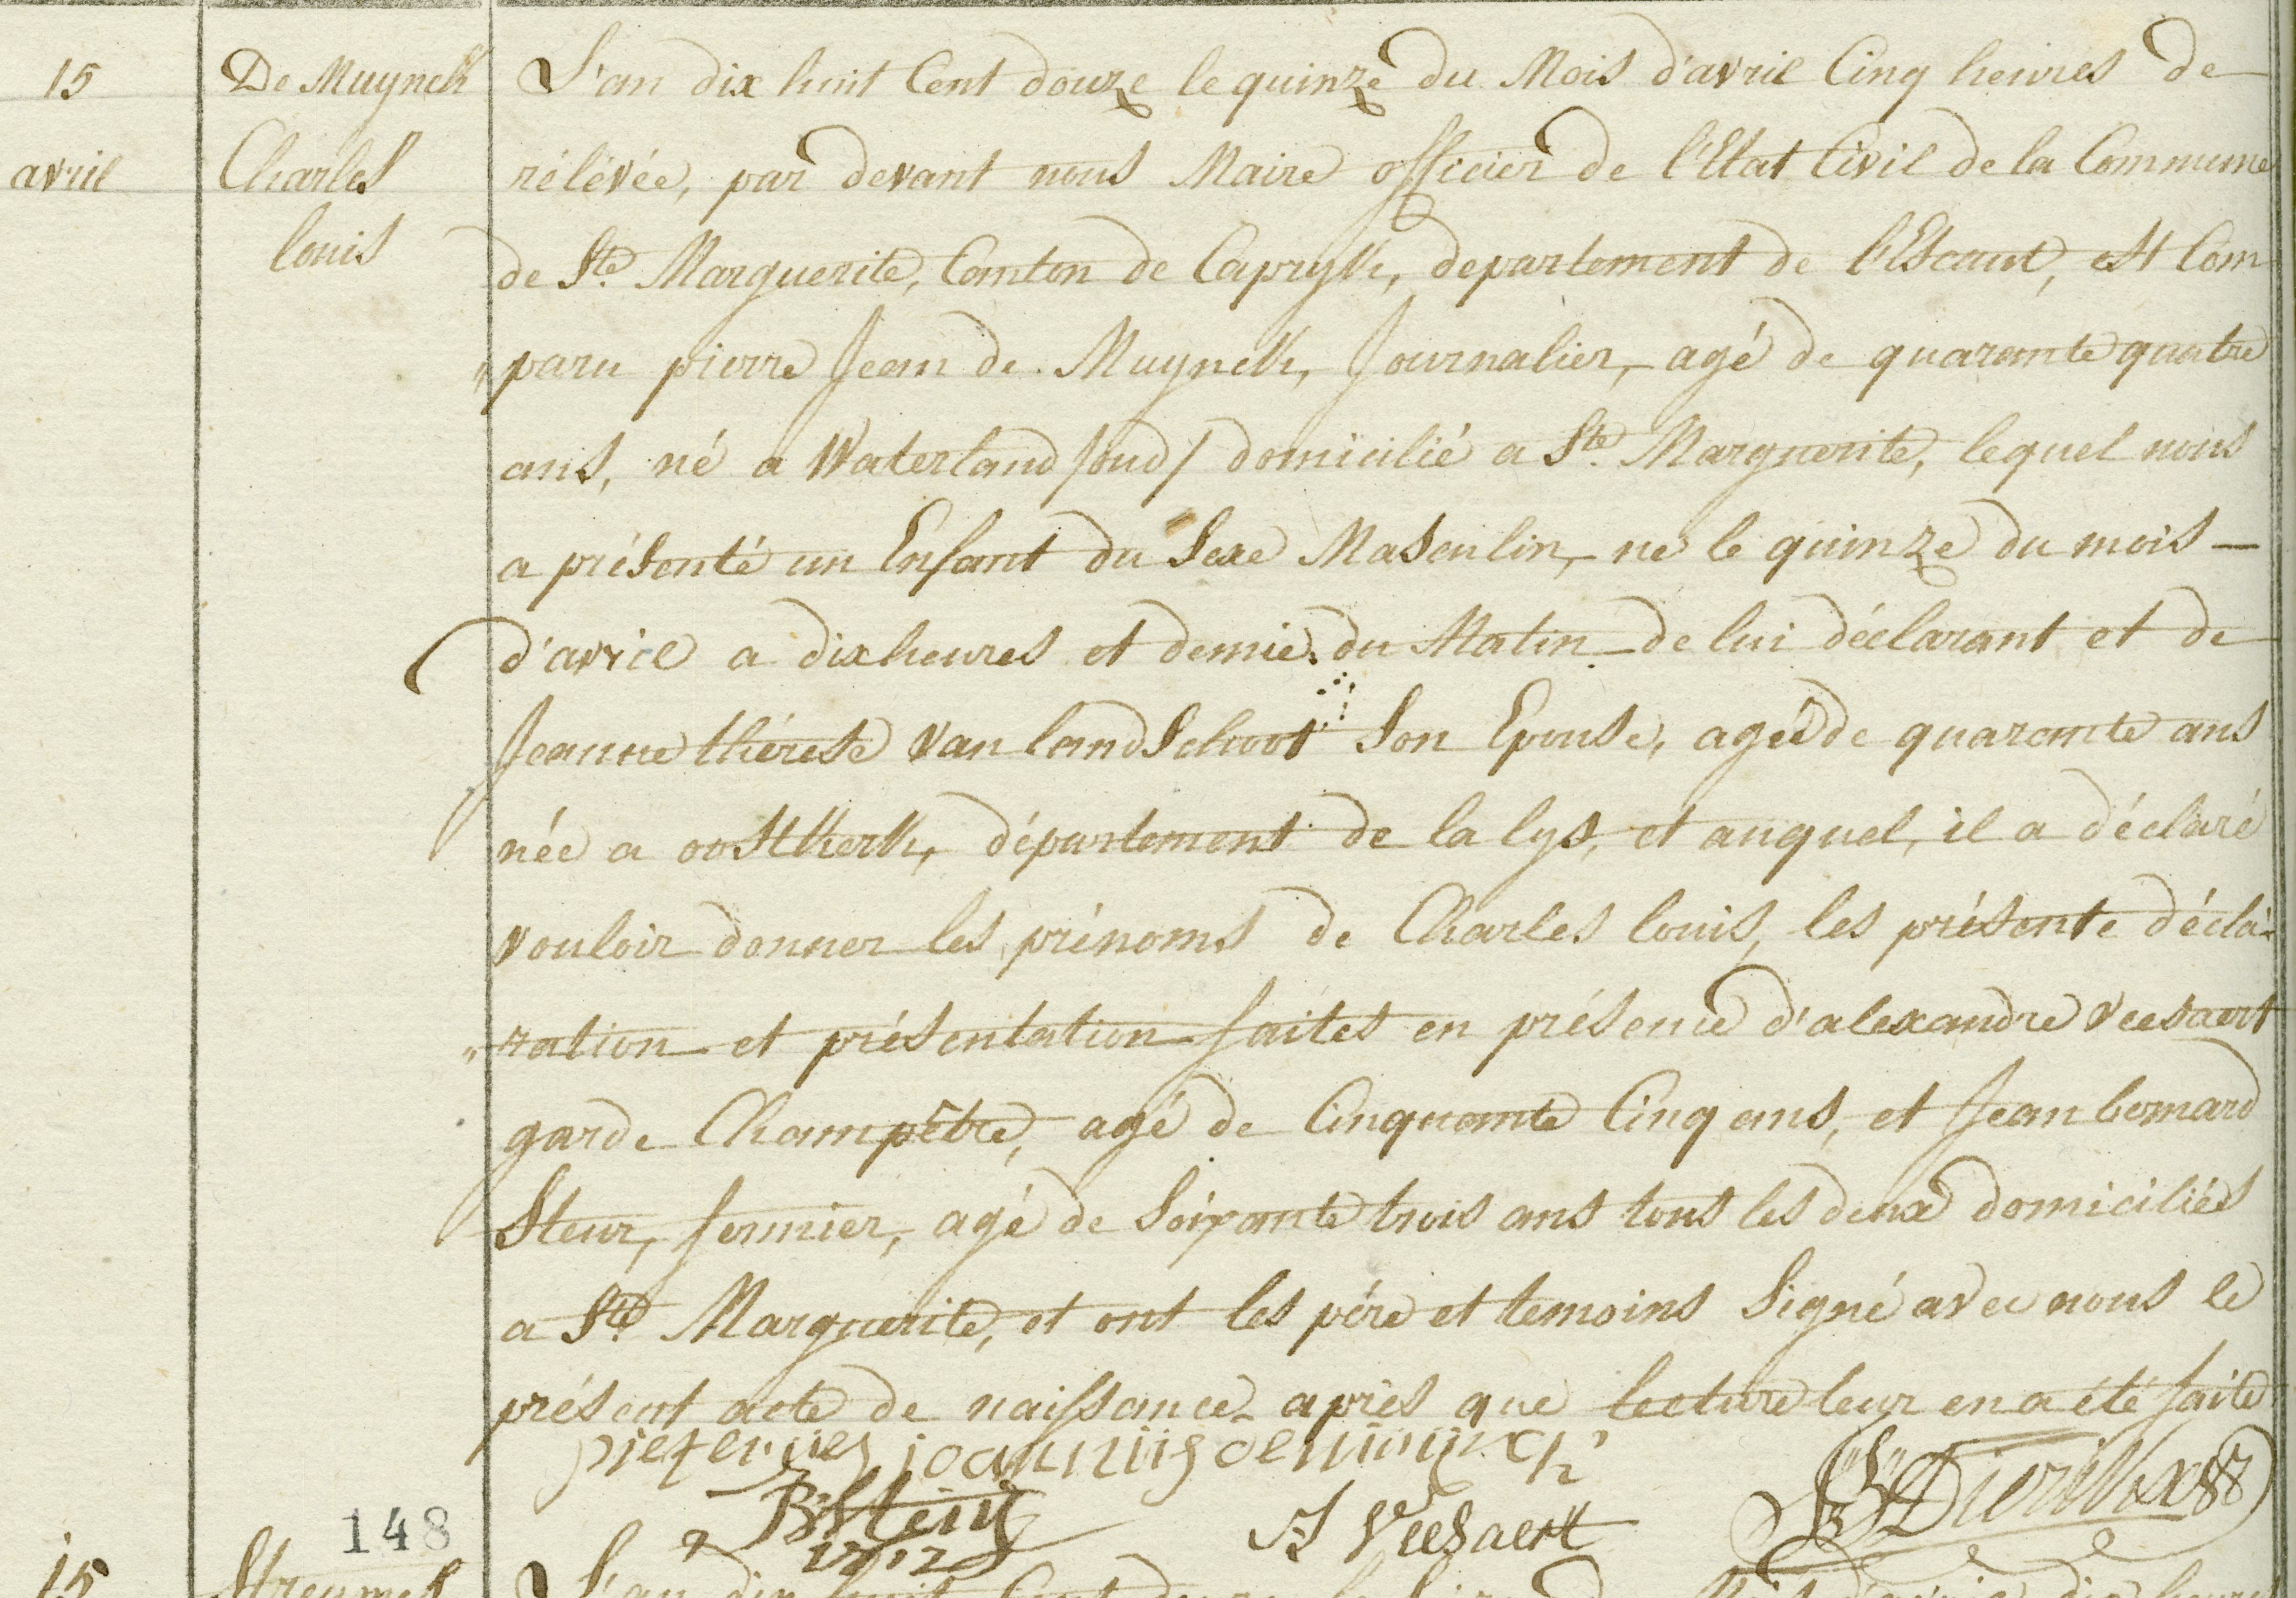 15
avril
De Muynck
Charles
louis
L'an dix huit Cent douze le quinze du Mois d'avril Cinq heures de
rélévée, par devant nous Maire officier de l'Etat Civil de la Commune
de Ste Marguerite, Canton de Capryk, departement de l'Escaut, est Com
"paru pierre Jean de Muynck, Journalier, agé de quarante quatre
ans, né a Waterland /oud/ domicilié a Ste Marguerite, lequel nous
a présenté un Enfant du Sexe Masculin, né le quinze du mois —
d'avril a dix heures et demie du Matin de lui déclarant et de
Jeanne thérese Van landschoot Son Epouse, agée de quarante ans
née a oostkerk, département de la lys, et auquel, il a déclaré
vouloir donner les prénoms de Charles louis, les présente décla-
"ration et présentation faites en présence d'alexandre Veesaert
garde Champêtre, agé de Cinquante Cinq ans, et Jean bernard
Steur, fermier, agé de Soixante trois ans tous les deux domiciliés
a Ste Marguerite, et ont les pére et temoins Signé avec nous le
présent acte de naissance après que lecture leur en a été faite
joannis demuynck
B Steur
J Veesaert
148
15
L'an dix huit Cent douze